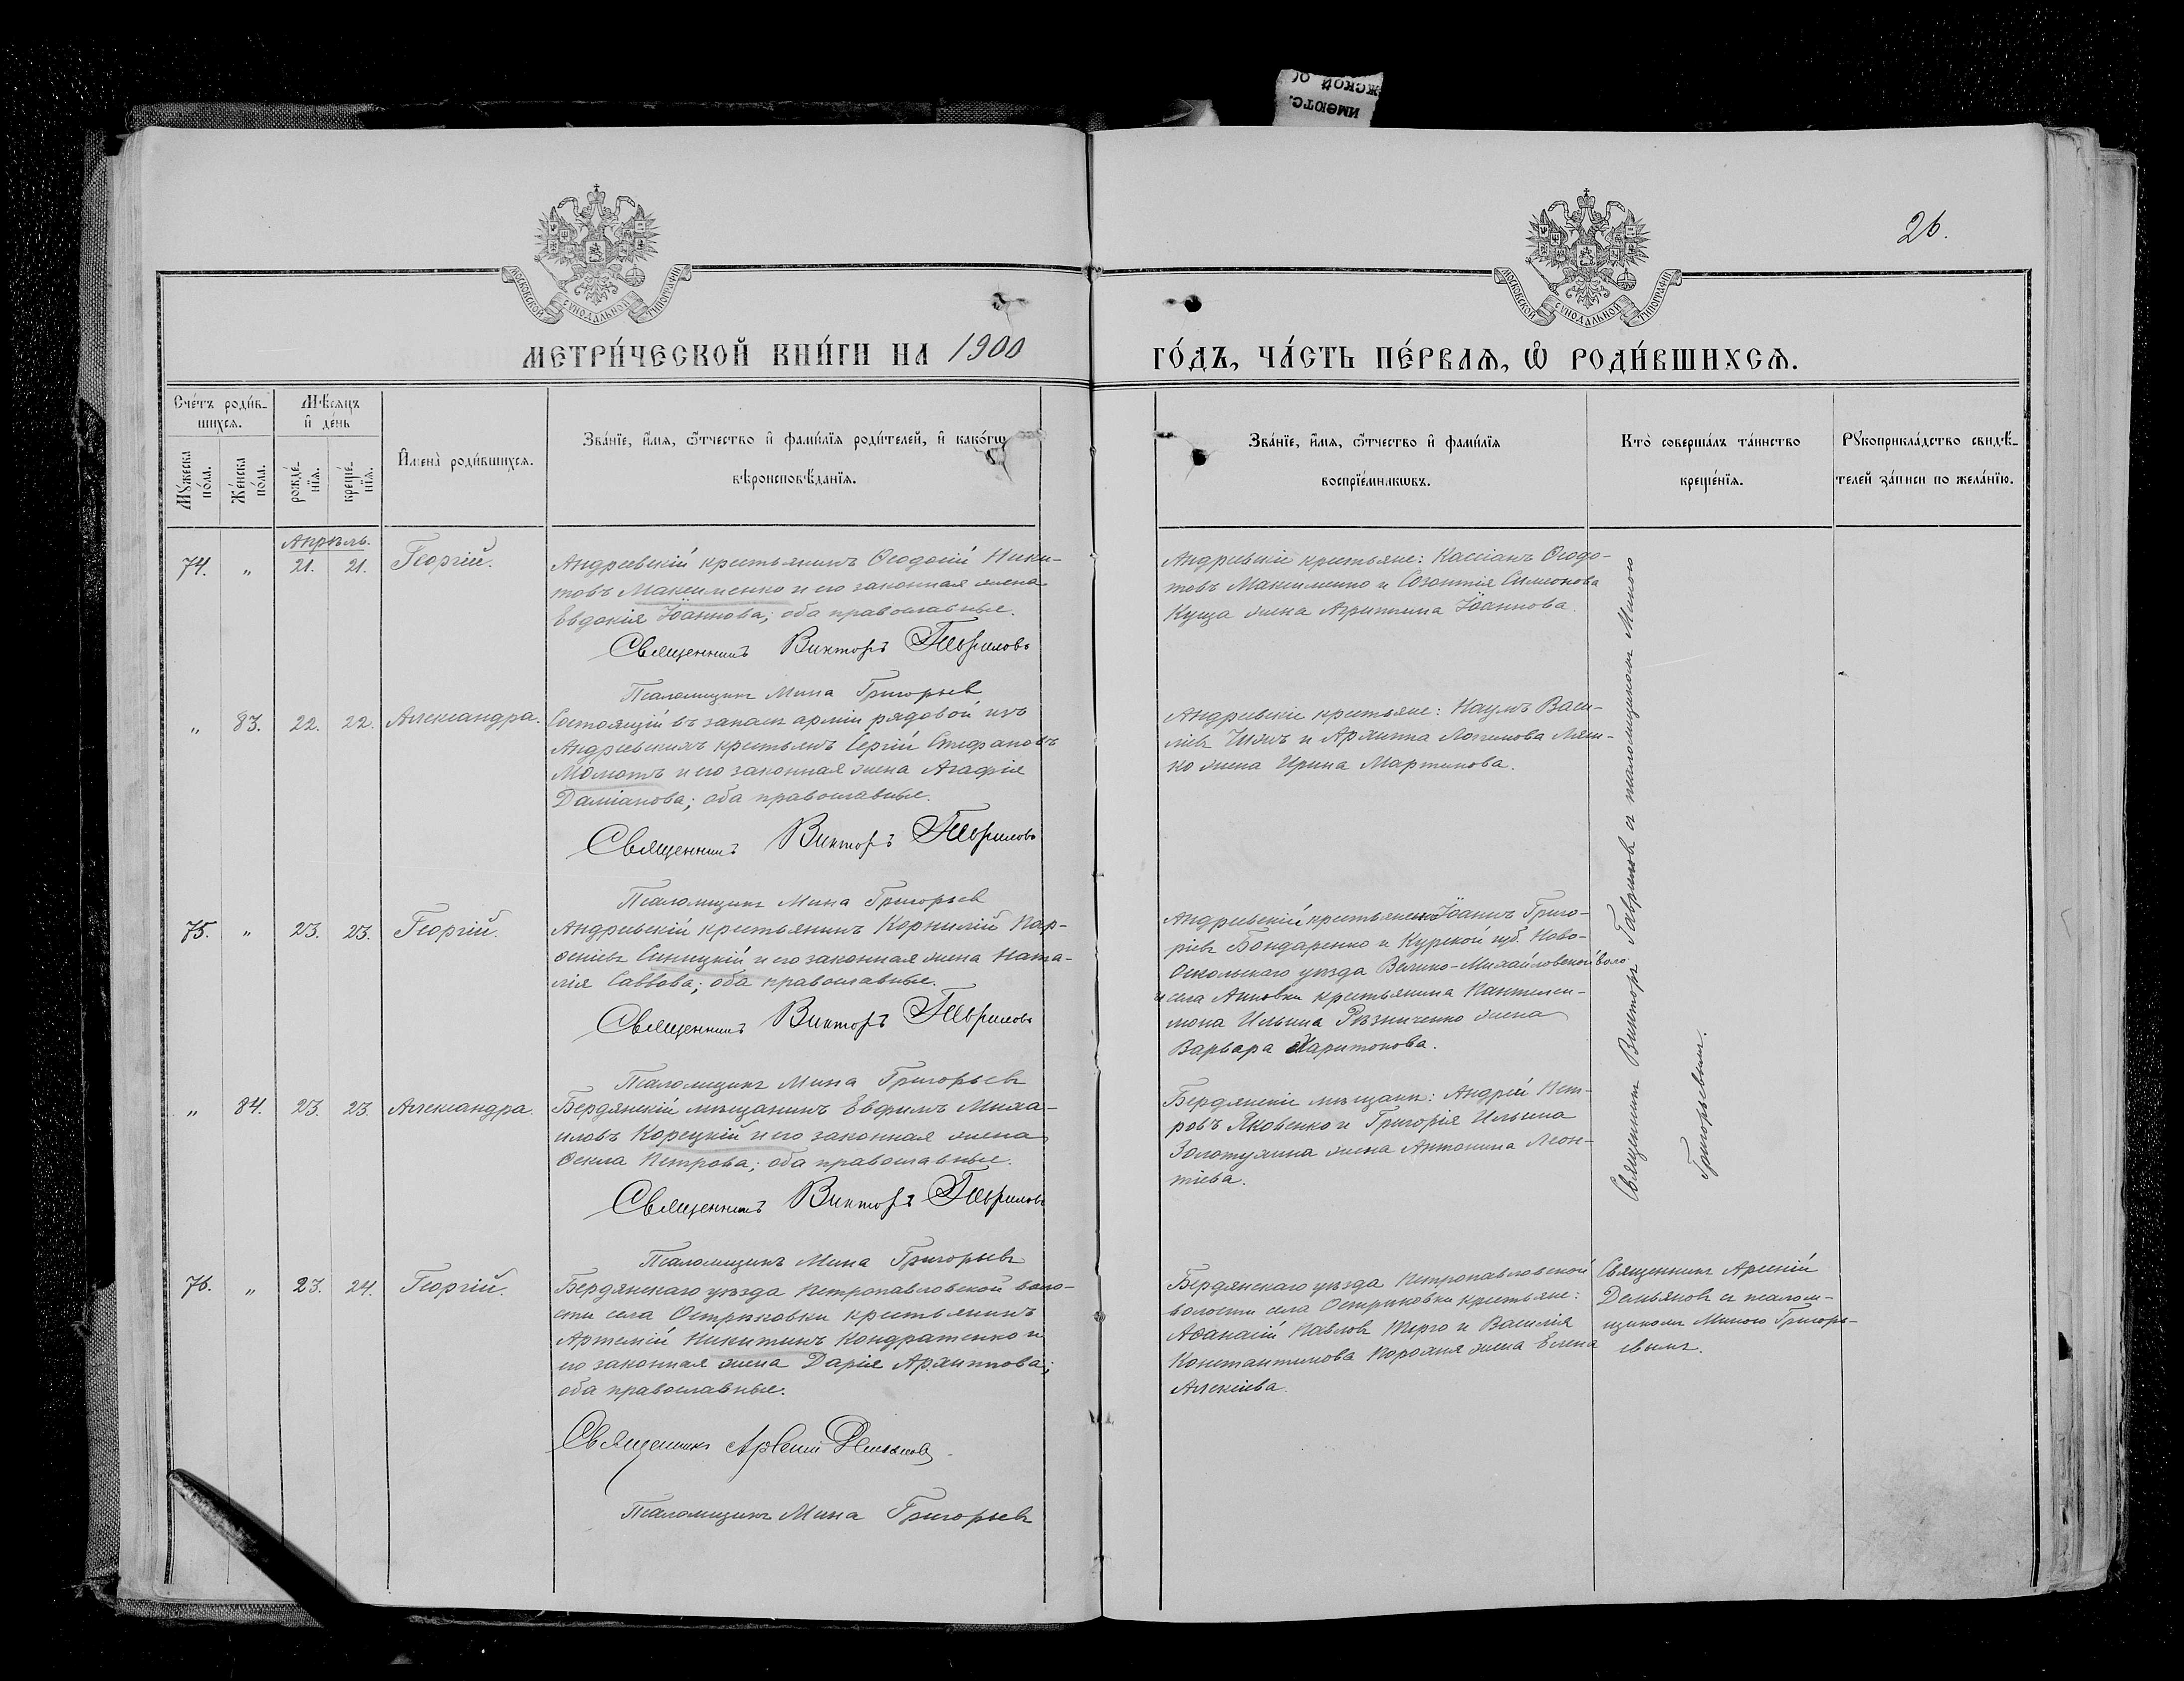 26.
МОСКОВСКОЙ СУНОДАЛЬНОЙ ТИПОГРАФІИ
МОСКОВСКОЙ СУНОДАЛЬНОЙ ТИПОГРАФІИ
МЕТРИ́ЧЕСКОЙ КНИ́ГИ НА 1900
ГО́ДЪ, ЧА́СТЬ ПЕ́РВАѦ, Ѽ РОДИ́ВШИХСѦ.
Сче́тъ роди́в-
шихсѧ.
Мѣ́сѧцъ
и҆ де́нь
Мꙋ́жеска
по́ла.
Же́нска
по́ла.
рожде́-
нїѧ.
креще́-
нїѧ.
И҆мена̀ роди́вшихсѧ.
Зва́нїе, и҆́мѧ, ѻ҆́тчество и҆ фами́лїѧ роди́телей, и҆ како́гѡ
вѣроисповѣ́данїѧ.
Зва́нїе, и҆́мѧ, ѻ҆́тчество и҆ фами́лїѧ
воспрїе́мникѡвъ.
Кто̀ соверша́лъ та́инство
креще́нїѧ.
Рꙋкоприкла́дство свидѣ́-
телей за́писи по жела́нїю.
Апрѣль.
74. " 21. 21. Георгій.
Андреевскій крестьянинъ Ѳеодосій Ники-
товъ Максименко и его законная жена
Евдокія Іоаннова; оба православные.
Священникъ Викторъ Гавриловъ
Псаломщикъ Мина Григорьевъ
Андреевскіе крестьяне: Кассіанъ Ѳеодо-
товъ Максименко и Созонтія Симеонова
Куща жена Агриппина Іоаннова.
" 83. 22. 22. Александра.
Состоящій въ запасѣ арміи рядовой изъ
Андреевскихъ крестьянъ Сергій Стефановъ
Момотъ и его законная жена Агафія
Даміанова; оба православные.
Священникъ Викторъ Гавриловъ
Псаломщикъ Мина Григорьевъ
Андреевскіе крестьяне: Наумъ Васи-
ліевъ и Архиппа Логинова Ляш-
ко жена Ирина Мартинова.
75. " 23. 23. Георгій.
Андреевскій крестьянинъ Корнилій Пар-
ѳеніевъ Синицкій и его законная жена Ната-
лія Саввова; оба православные.
Священникъ Викторъ Гавриловъ
Псаломщикъ Мина Григорьевъ
Андреевскій крестьянинъ Іоаннъ Григо-
ріевъ Бондаренко и Курской губ. Ново-
Оскольскаго уѣзда Велико-Михайловской воло
и села Анновки крестьянина Пантелеи-
мона Ильина Рѣзниченко жена
Варвара Харитонова.
" 84. 23. 23. Александра.
Бердянскій мѣщанинъ Евфимъ Миха-
иловъ Корецкій и его законная жена
Ѳекла Петрова; оба православные.
Священникъ Викторъ Гавриловъ
Псаломщикъ Мина Григорьевъ
Бердянскіе мѣщане: Андрей Пет-
ровъ Яковенко и Григорія Ильина
Золотухина жена Антонина Леон-
тіева.
Священникъ Викторъ Гавриловъ съ псаломщикомъ Миною
Григорьевымъ.
76. " 23. 24. Георгій.
Бердянскаго уѣзда Петропавловской воло-
сти села Остриковки крестьянинъ
Артемій Никитинъ Кондратенко и
его законная жена Дарія Архиппова;
оба православные.
Священникъ Арсеній Демьяновъ
Псаломщикъ Мина Григорьевъ
Бердянскаго уѣзда Петропавловской
волости села Остриковки крестьяне:
Аѳанасій Павловъ и Василія
Константинова жена Елена
Алексіева.
Священникъ Арсеній
Демьяновъ съ псалом-
щикомъ Миною Григорь-
евымъ.